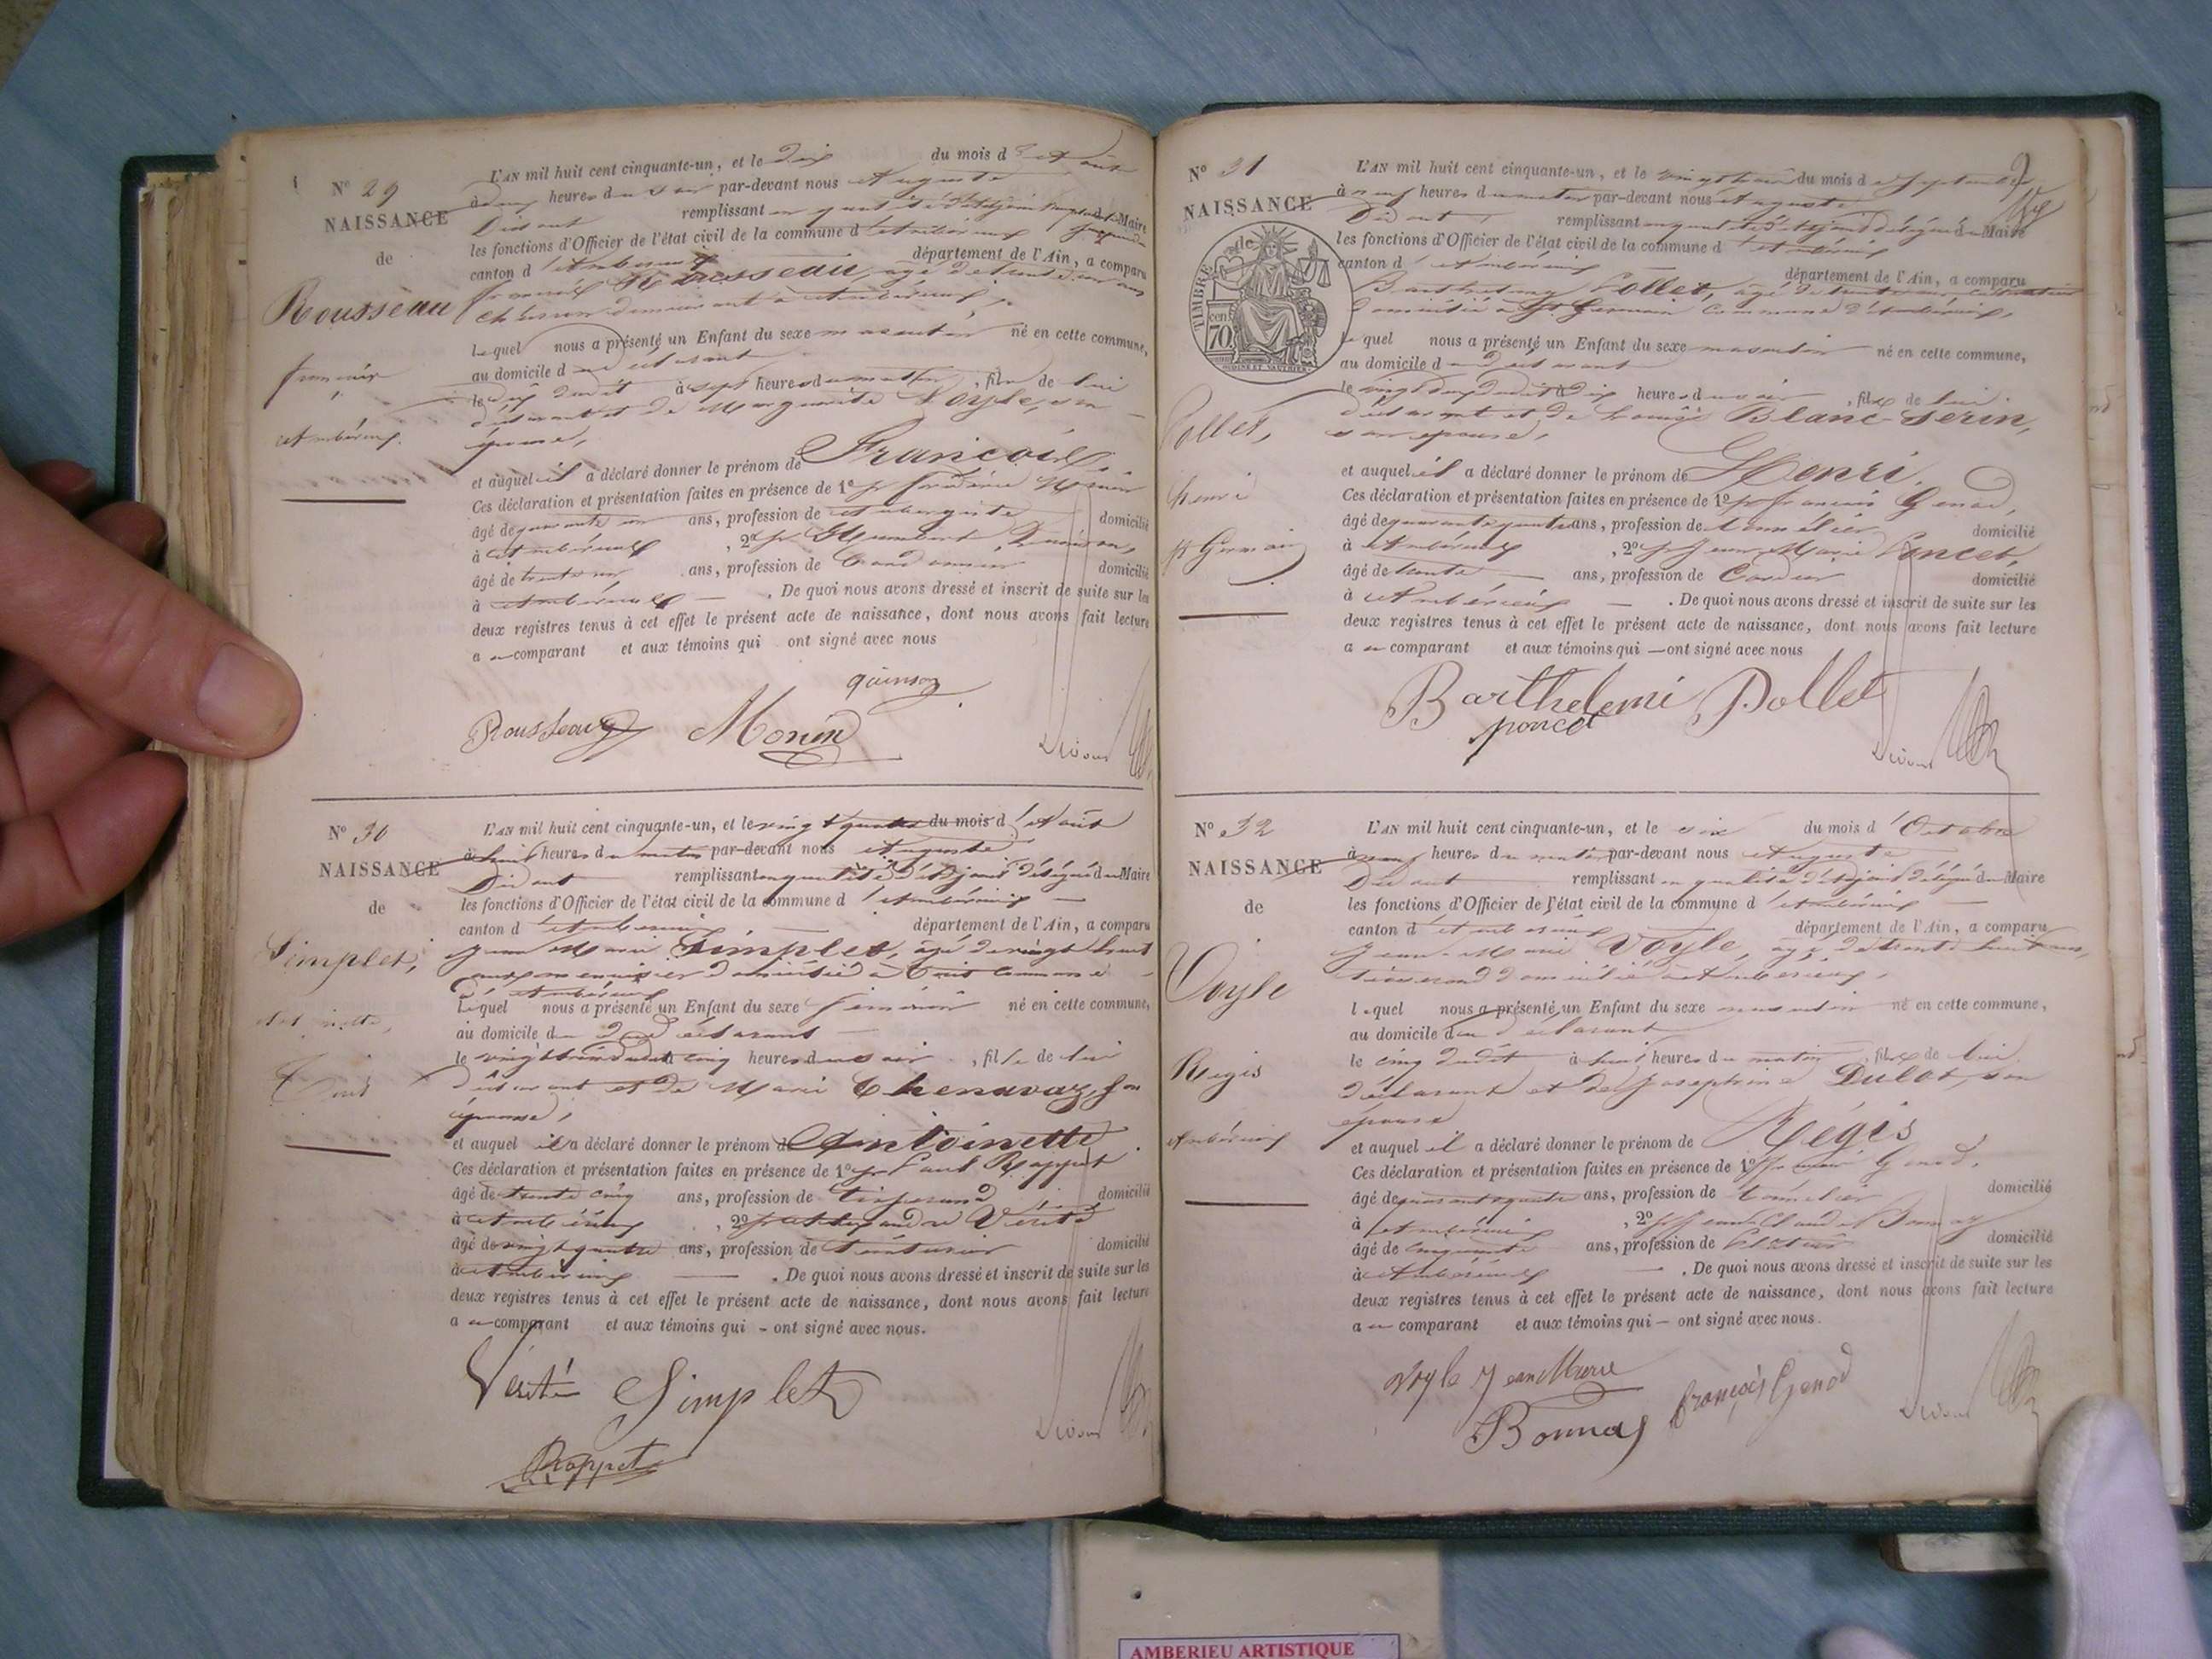 N° 29
NAISSANCE
de
Rousseau
françois
Ambérieux
L'AN mil huit cent cinquante-un, et le dix du mois d'Août
à deux heures du soir par-devant nous Auguste
Didout remplissant en qualité d'Adjoint Maire
les fonctions d'Officier de l'état civil de la commune d'Ambérieux
canton d'Ambérieux département de l'Ain, a comparu
françois Rousseau, âgé de trente ans
demeurant à Ambérieux,
lequel nous a présenté un Enfant du sexe masculin né en cette commune,
au domicile du déclarant
le dix dudit à sept heures du matin, fils de lui
déclarant et de Marguerite Voyle, son
épouse,
et auquel il a déclaré donner le prénom de François.
Ces déclaration et présentation faites en présence de 1° Monin
âgé de quarante un ans, profession de Aubergiste domicilié
à Ambérieux, 2° Humbert Quinson,
âgé de trente un ans, profession de Cordonnier domicilié
à Ambérieux. De quoi nous avons dressé et inscrit de suite sur les
deux registres tenus à cet effet le présent acte de naissance, dont nous avons fait lecture
au comparant et aux témoins qui ont signé avec nous
quinson
Rousseau Monin
N° 30
NAISSANCE
de
Simplet,
Antoinette,
L'AN mil huit cent cinquante-un, et le vingt quatre du mois d'Août
à huit heures du matin par-devant nous Auguste
Didout remplissant en qualité d'Adjoint délégué du Maire
les fonctions d'Officier de l'état civil de la commune d'Ambérieux
canton d'Ambérieux département de l'Ain, a comparu
Jean Marie Simplet, âgé de vingt huit
ans, menuisier domicilié à commune
d'Ambérieux
Lequel nous a présenté un Enfant du sexe féminin né en cette commune,
au domicile du déclarant
le vingt trois dudit à cinq heures du soir, fille de lui
déclarant et de Marie Chenavaz, son
épouse,
et auquel il a déclaré donner le prénom d'Antoinette.
Ces déclaration et présentation faites en présence de 1° Paul Rappet
âgé de trente cinq ans, profession de tisserand domicilié
à Ambérieux, 2° Alexandre Vérité
âgé de vingt quatre ans, profession de teinturier domicilié
à Ambérieux. De quoi nous avons dressé et inscrit de suite sur les
deux registres tenus à cet effet le présent acte de naissance, dont nous avons fait lecture
au comparant et aux témoins qui - ont signé avec nous.
Vérité Simplet
Rappet
N° 31
NAISSANCE
de
TIMBRE
cent 70
Pollet,
henri
St Germain
L'AN mil huit cent cinquante-un, et le vingt trois du mois de Septembre
à neuf heures du matin par-devant nous Auguste
Didout remplissant en qualité d'Adjoint délégué du Maire
les fonctions d'Officier de l'état civil de la commune d'Ambérieux
canton d'Ambérieux département de l'Ain, a comparu
Barthelemy Pollet, âgé de trente cultivateur
domicilié à St Germain Commune d'Ambérieux,
lequel nous a présenté un Enfant du sexe masculin né en cette commune,
au domicile du déclarant
le vingt deux dudit à dix heures du soir, fils de lui
déclarant et de Blanc-Serin,
son épouse,
et auquel il a déclaré donner le prénom de Henri.
Ces déclaration et présentation faites en présence de 1° françois Genod,
âgé de quarante quatre ans, profession de tonnelier domicilié
à Ambérieux, 2° Jean-Marie Poncet,
âgé de trente ans, profession de Cordier domicilié
à Ambérieux. De quoi nous avons dressé et inscrit de suite sur les
deux registres tenus à cet effet le présent acte de naissance, dont nous avons fait lecture
au comparant et aux témoins qui — ont signé avec nous
Barthelemi Pollet
poncet
N° 32
NAISSANCE
de
Voyle
Régis
Ambérieux
L'AN mil huit cent cinquante-un, et le six du mois d'Octobre
à neuf heures du matin par-devant nous Auguste
Didout remplissant en qualité d'Adjoint délégué du Maire
les fonctions d'Officier de l'état civil de la commune d'Ambérieux
canton d'Ambérieux département de l'Ain, a comparu
Jean-Marie Voyle, âgé de trente huit ans,
tisserand domicilié à Ambérieux,
lequel nous a présenté un Enfant du sexe masculin né en cette commune,
au domicile du déclarant
le cinq dudit à huit heures du matin, fils de lui
déclarant et de Josephine Dulot, son
épouse
et auquel il a déclaré donner le prénom de Régis
Ces déclaration et présentation faites en présence de 1° françois Genod,
âgé de quarante quatre ans, profession de tonnelier domicilié
à Ambérieux, 2° Jean Claude Bonnay
âgé de cinquante ans, profession de domicilié
à Ambérieux. De quoi nous avons dressé et inscrit de suite sur les
deux registres tenus à cet effet le présent acte de naissance, dont nous avons fait lecture
au comparant et aux témoins qui — ont signé avec nous.
Voyle Jean Marie
Bonnay françois Genod
AMBERIEU ARTISTIQUE